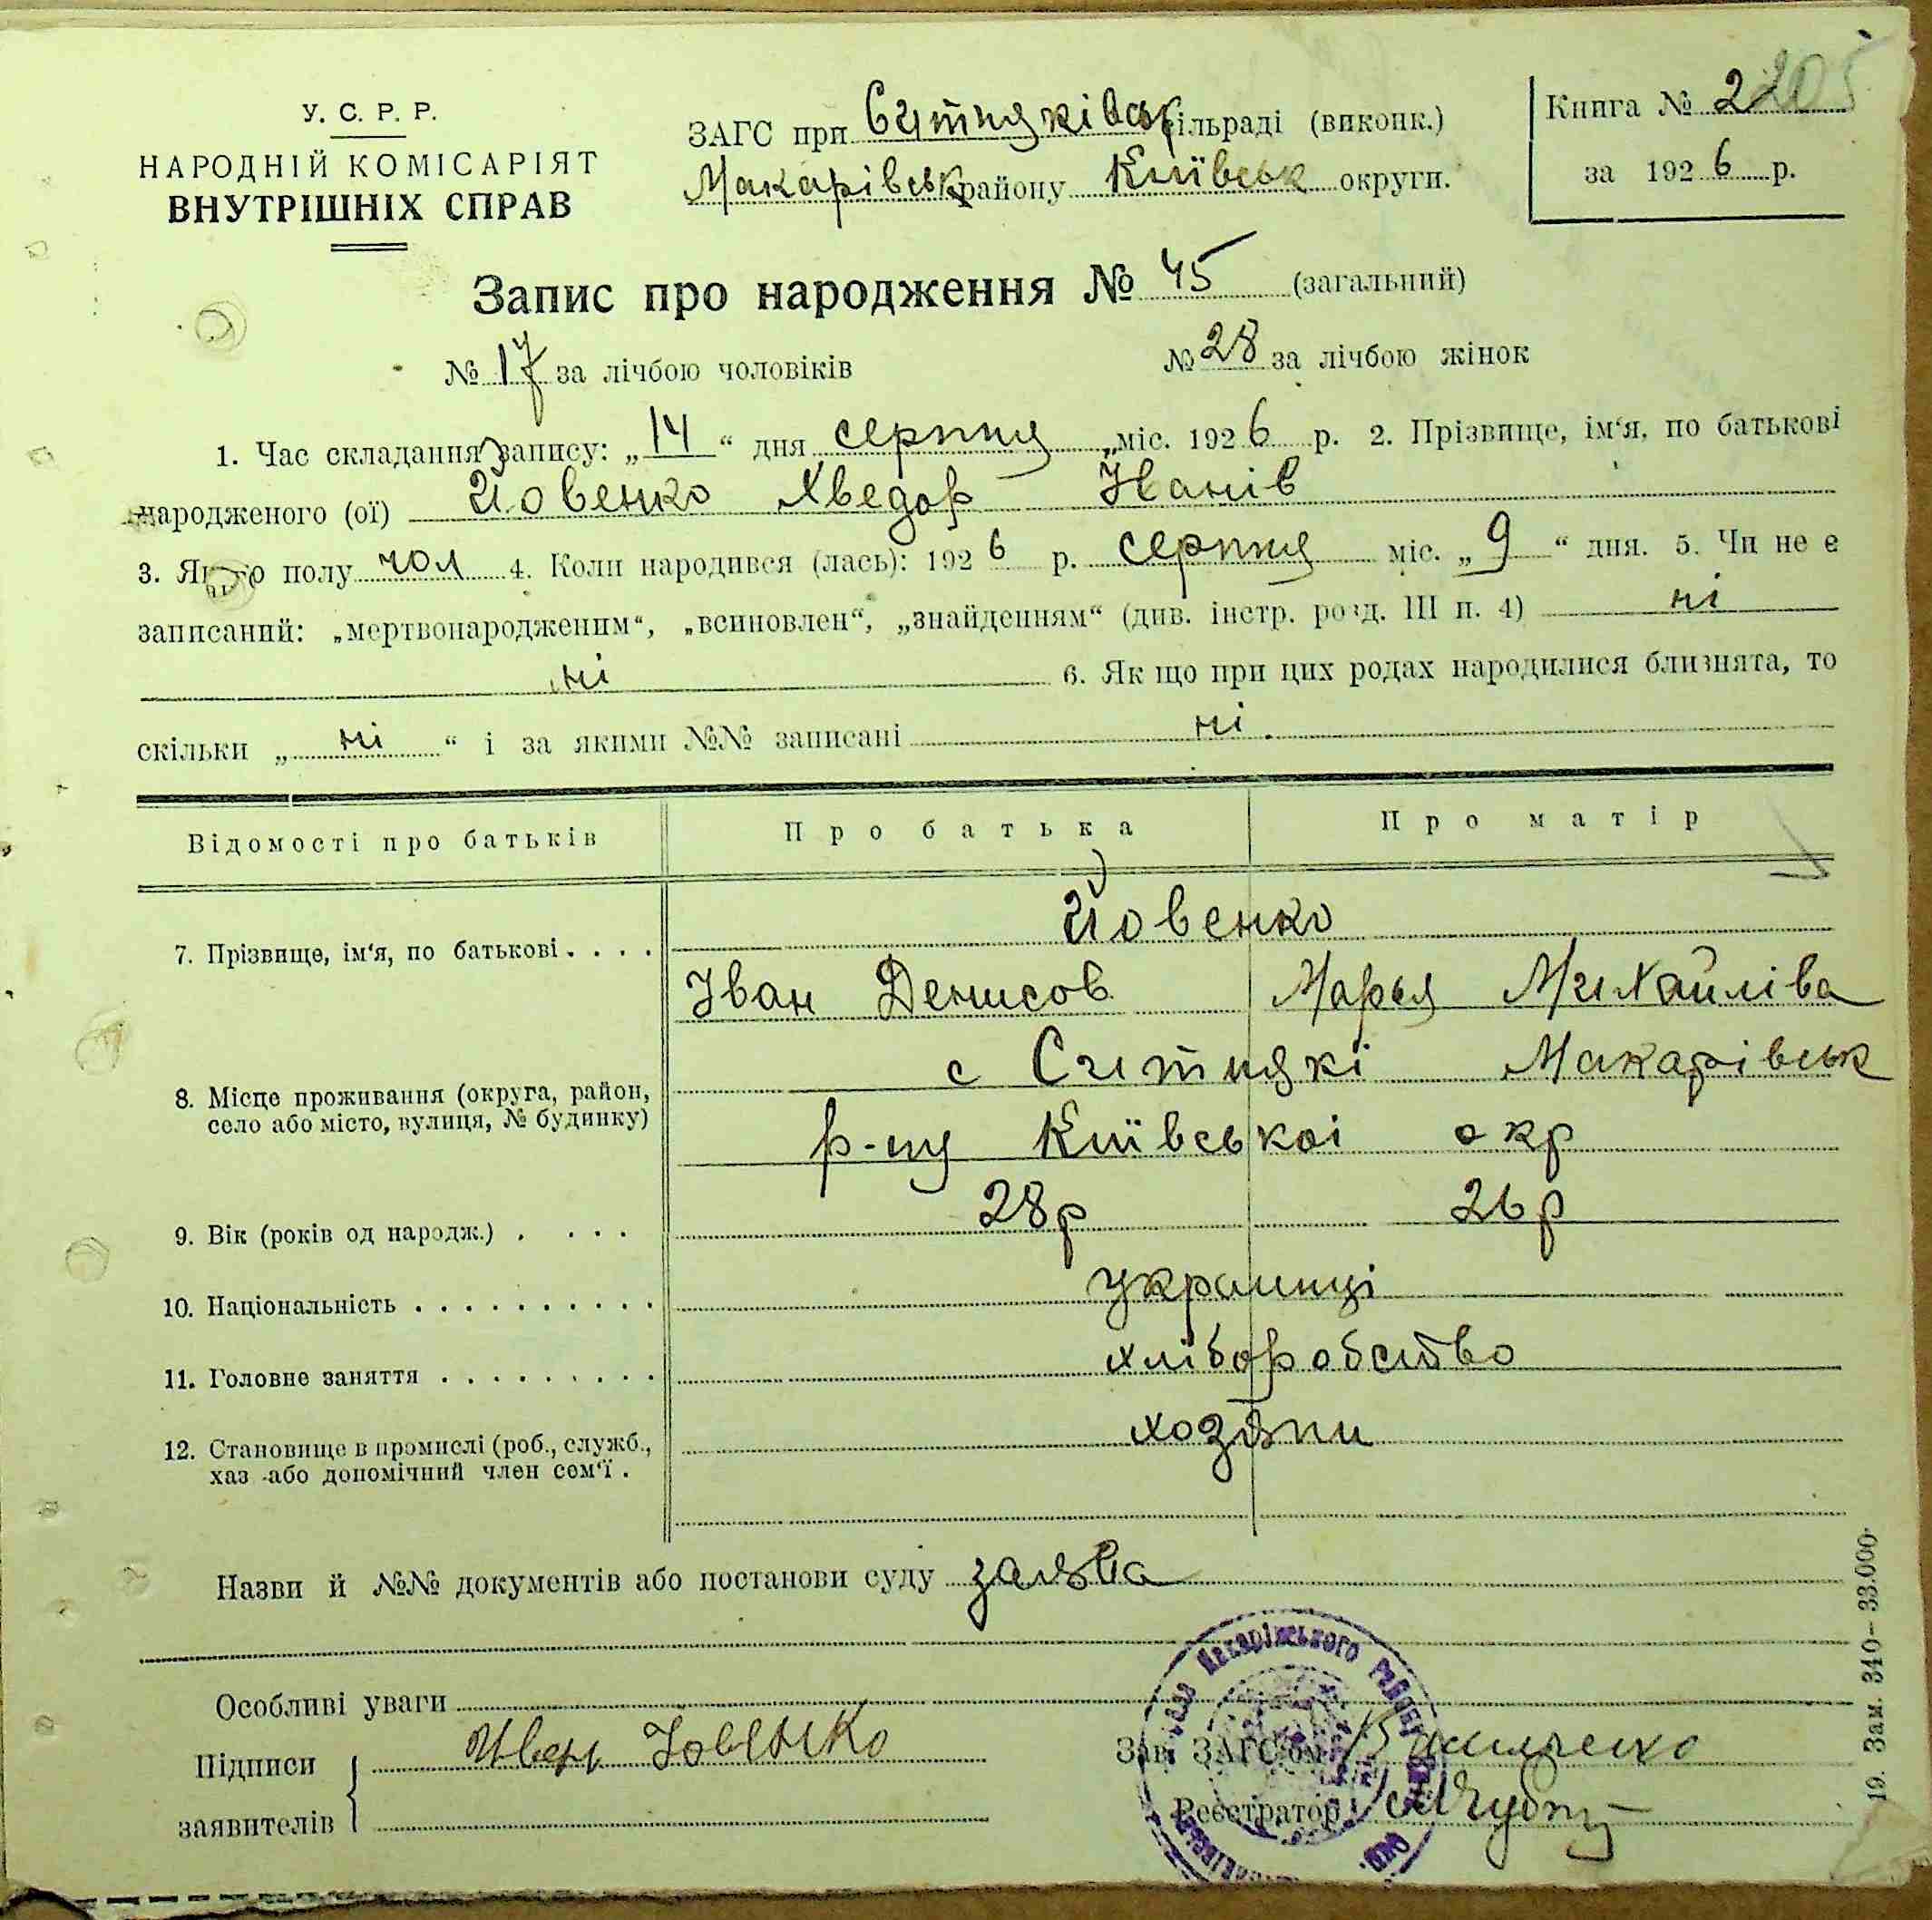 У. С. Р. Р.
НАРОДНІЙ КОМІСАРІЯТ
ВНУТРІШНІХ СПРАВ
ЗАГС при Ситняківськ сільраді (виконк.)
Макарівськ району Київськ округи.
Книга № 2 205
за 1926 р.
Запис про народження № 45 (загальний)
№ 17 за лічбою чоловіків № 28 за лічбою жінок
1. Час складання запису: „14“ дня серпня міс. 1926 р. 2. Прізвище, ім‘я, по батькові
народженого (ої) Йовенко Хведор Іванів
3. Якого полу чол 4. Коли народився (лась): 1926 р. серпня міс. „9“ дня. 5. Чи не є
записаний: „мертвонародженим“, „всиновлен“, „знайденням“ (див. інстр. розд. III п. 4) ні
ні 6. Як що при цих родах народилися близнята, то
скільки „ні“ і за якими №№ записані ні.
Відомості про батьків Про батька Про матір
Йовенко
7. Прізвище, ім‘я, по батькові . . . .
Іван Денисов Марья Михайліва
с Ситнякі Макарівськ
8. Місце проживання (округа, район,
село або місто, вулиця, № будинку)
р-ну Київськоі окр
9. Вік (років од народж.) . . . . 28р 26р
10. Національність . . . . . . . . . . украинці
11. Головне заняття . . . . . . . . . хліборобство
12. Становище в промислі (роб., служб.,
хаз або допомічний член сем‘ї . хозяни
Назви й №№ документів або постанови суду заява
Особливі уваги
Підписи
заявителів
Йовенко
Зав. ЗАГС‘ом
Реєстратор
Макарівського району
19. Зам. 340—33.000.